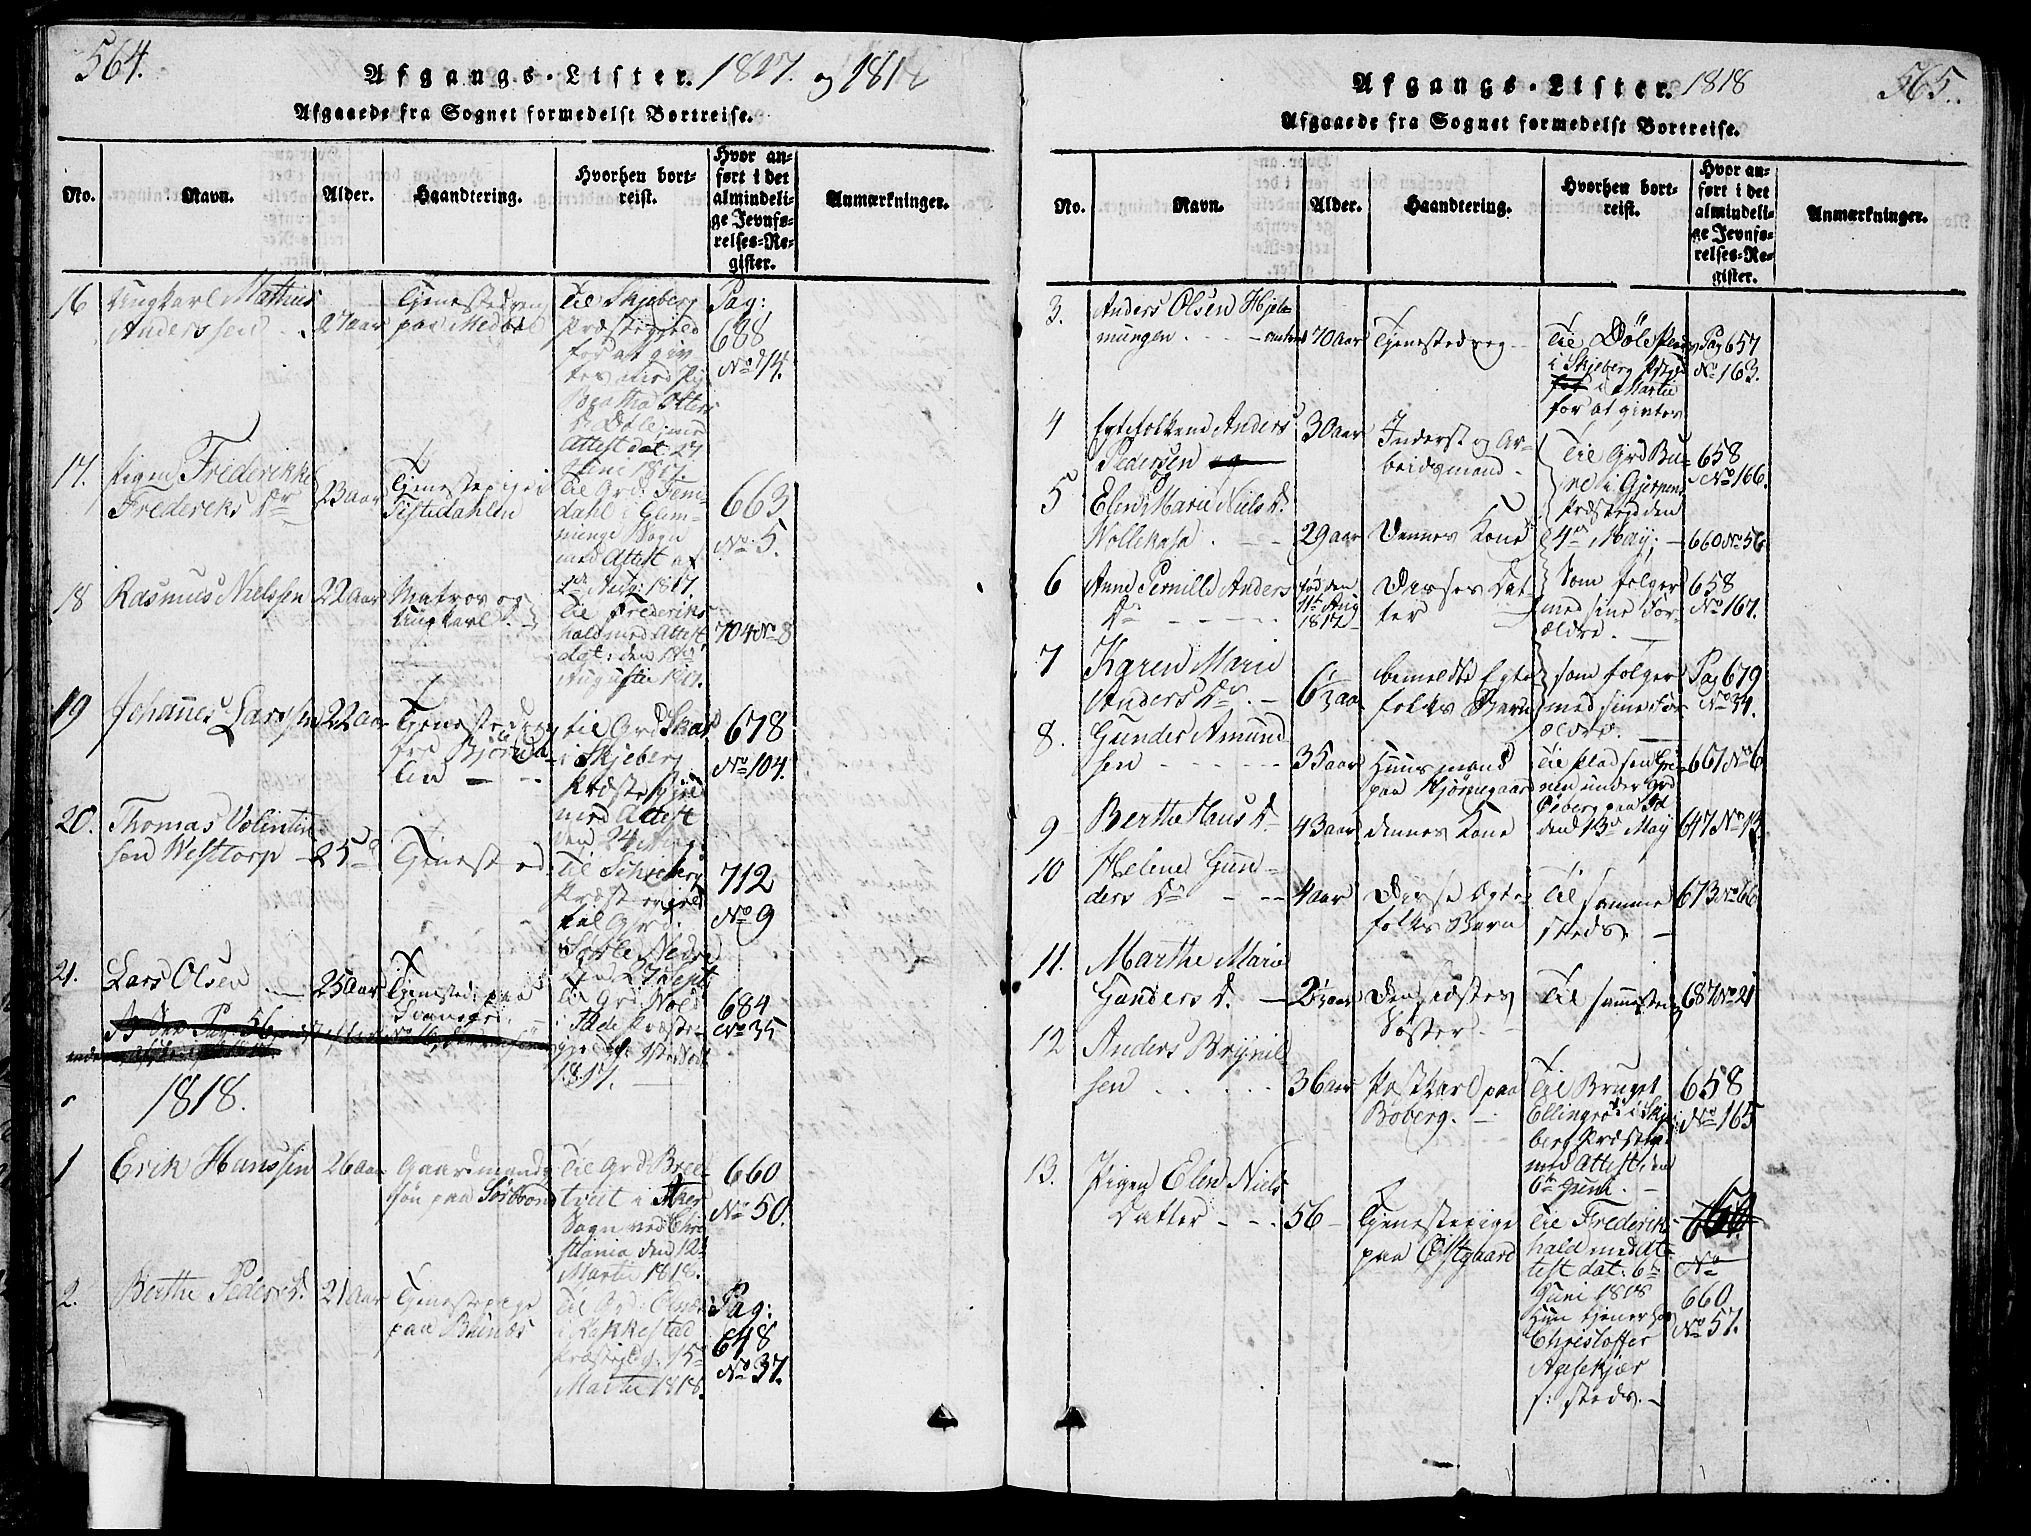 564.
Afgangs-Lister. 1817. og 1818
Afgaaede fra Sognet formedelst Bortreise.
No.
Navn.
Alder.
Haandtering.
Hvorhen bort-
reist.
Hvor an-
ført i det
almindeli-
ge Jevnfø-
relses-Re-
gister.
Anmærkninger.
16
Ungkarl Mathias
Anderssen
27 aar
Tjenestedreng
paa
Til Skjeberg
Præstegjeld
for at giv
tes med Pig
Beatha Olters
Dr Døle, med
Attest dat 27
Juni 1817.
Pag:
688
No 14.
17.
Pigen Frederikke
Frederiks Dr
23 aar
Tjenestepige i
Tistedahlen
Til Grd: Tom-
dahl i Glem-
minge Sogn
med Attest af
1817.
663
No. 5.
18
Rasmus Nielssen
22 aar
Matros og
Ungkarl
Til Frederiks
hald med Attest
dat: den
Augustii 1817.
704 No 8
19
Johannes Larssen
22 aar
Tjenestedreng
til Grd Skar
i Skjeberg
Præstegjeld
med Attest
den 24 Aug
678
No 104.
20.
Thomas Volentin
sen Westtorp
25
Tjenested
Til Schieberg
Præstegjeld
til Grd:
Nedre
den 27 Sept
712
No 9
21.
Lars Olsen
25 aar
Tjenested: paa
Til Grd:
i Præste-
1817.
684
No 35
1818.
1
Erik Hanssen
26 aar
Gaardmands
søn paa Sørbrond
Til Grd Bree
tvet i Aker
Sogn ved Chri
stiania den 12
Martii 1818.
660
No 50.
2.
Berthe Peders D.
21 aar
Tjenestepige
paa
Til Grd:
i Rakkestad
Præstegjeld 15
Martii 1818.
Pag:
648
No 37.
565.
Afgangs-Lister. 1818
Afgaaede fra Sognet formedelst Bortreise.
No.
Navn.
Alder.
Haandtering.
Hvorhen bort-
reist.
Hvor an-
ført i det
almindeli-
ge Jevnfø-
relses-Re-
gister.
Anmærkninger.
3.
Anders Olsen Hjel-
mungen
70 aar
Tjenestedreng
Til Døle Plads
i Skjeberg Præstegj
i Martii
for at giftes
Pag 657
No 163.
4
Egtefolkene Anders
Pedersen og
30 aar
Inderst og Ar-
beidsmand
Til Grd Bu-
re i Gjerpens
Præstegjeld den
4de May.
658
No 166.
5
Elen Marie Niels D.
Wollekasa
29 aar
Dennes Kone
660 No 56
6
Anne Pernille Anders
Dr
født den
11te Aug
1817
Disses Dat-
ter
Som følger
med sine For-
ældre.
658
No 167.
7
Karen Marie
Anders Dr
6½ aar
bemeldte Egte
folks Barn
som følger
med sine For-
ældre.
Pag 679
No 34.
8.
Gunder Amund
sen
35 aar
Huusmand
paa Hjørnegaard
Til Pladsen
under Grd
Osberg paa Id
den 13de May
661 No 6
9
Berthe Hans D.
43 aar
dennes Kone
647 No
10
Helene Gun-
ders Dr
4 aar
Disse Egte
folks Barn
Til samme
steds
673 No 66
11.
Marthe Marie
Gunders D.
2½ aar
Den sidstes
Søster
Til sammested
687 No 21
12
Anders Brynil
sen
36 aar
Postkarl paa
Boberg.
Til Bruget
Ellingrød i Skje
berg Præstegj
med Attest den
6te Juni.
658
No 165
13.
Pigen Elen Niels
Datter
56
Tjenestepige
paa Østgaard
Til Frederiks
hald med At-
test dat: 6te
Juni 1818
Hun tjener hos
Christoffer
Aaskjær
s: steds.
No
660
No 57.